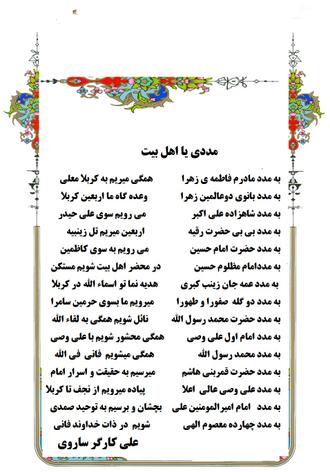 مددی یا اهل بیت
به مدد مادرم فاطمه ی زهرا همگی میریم به کربلا معلی
به مدد بانوی دوعالمین زهرا وعده گاه ما اربعین کربلا
به مدد شاهزاده علی اکبر می رویم سوی علی حیدر
به مدد بی بی حضرت رقیه اربعین میریم تل زینبیه
به مدد حضرت امام حسین می رویم به سوی کاظمین
به مددامام مظلوم حسین در محضر اهل بیت شویم مستکن
به مدد عمه جان زینب کبری هدیه نما تو اسماء الله در کربلا
به مدد دو گله صفورا و طهورا میرویم ما بسوی حرمین سامرا
به مدد حضرت محمد رسول الله نائل شویم همگی به لقاء الله
به مدد امام اول علی وصی همگی محشور شویم با علی وصی
به مدد محمد رسول الله همگی میشویم فانی فی الله
به مدد حضرت قمربنی هاشم میرسیم به حقیقت و اسرار امام
به مدد علی وصی عالی اعلا پیاده میرویم از نجف تا کربلا
به مدد امام امیرالمومنین علی بچشان و برسیم به توحید صمدی
به مدد چهارده معصوم الهی شویم در ذات خداوند فانی
علی کارگر ساروی